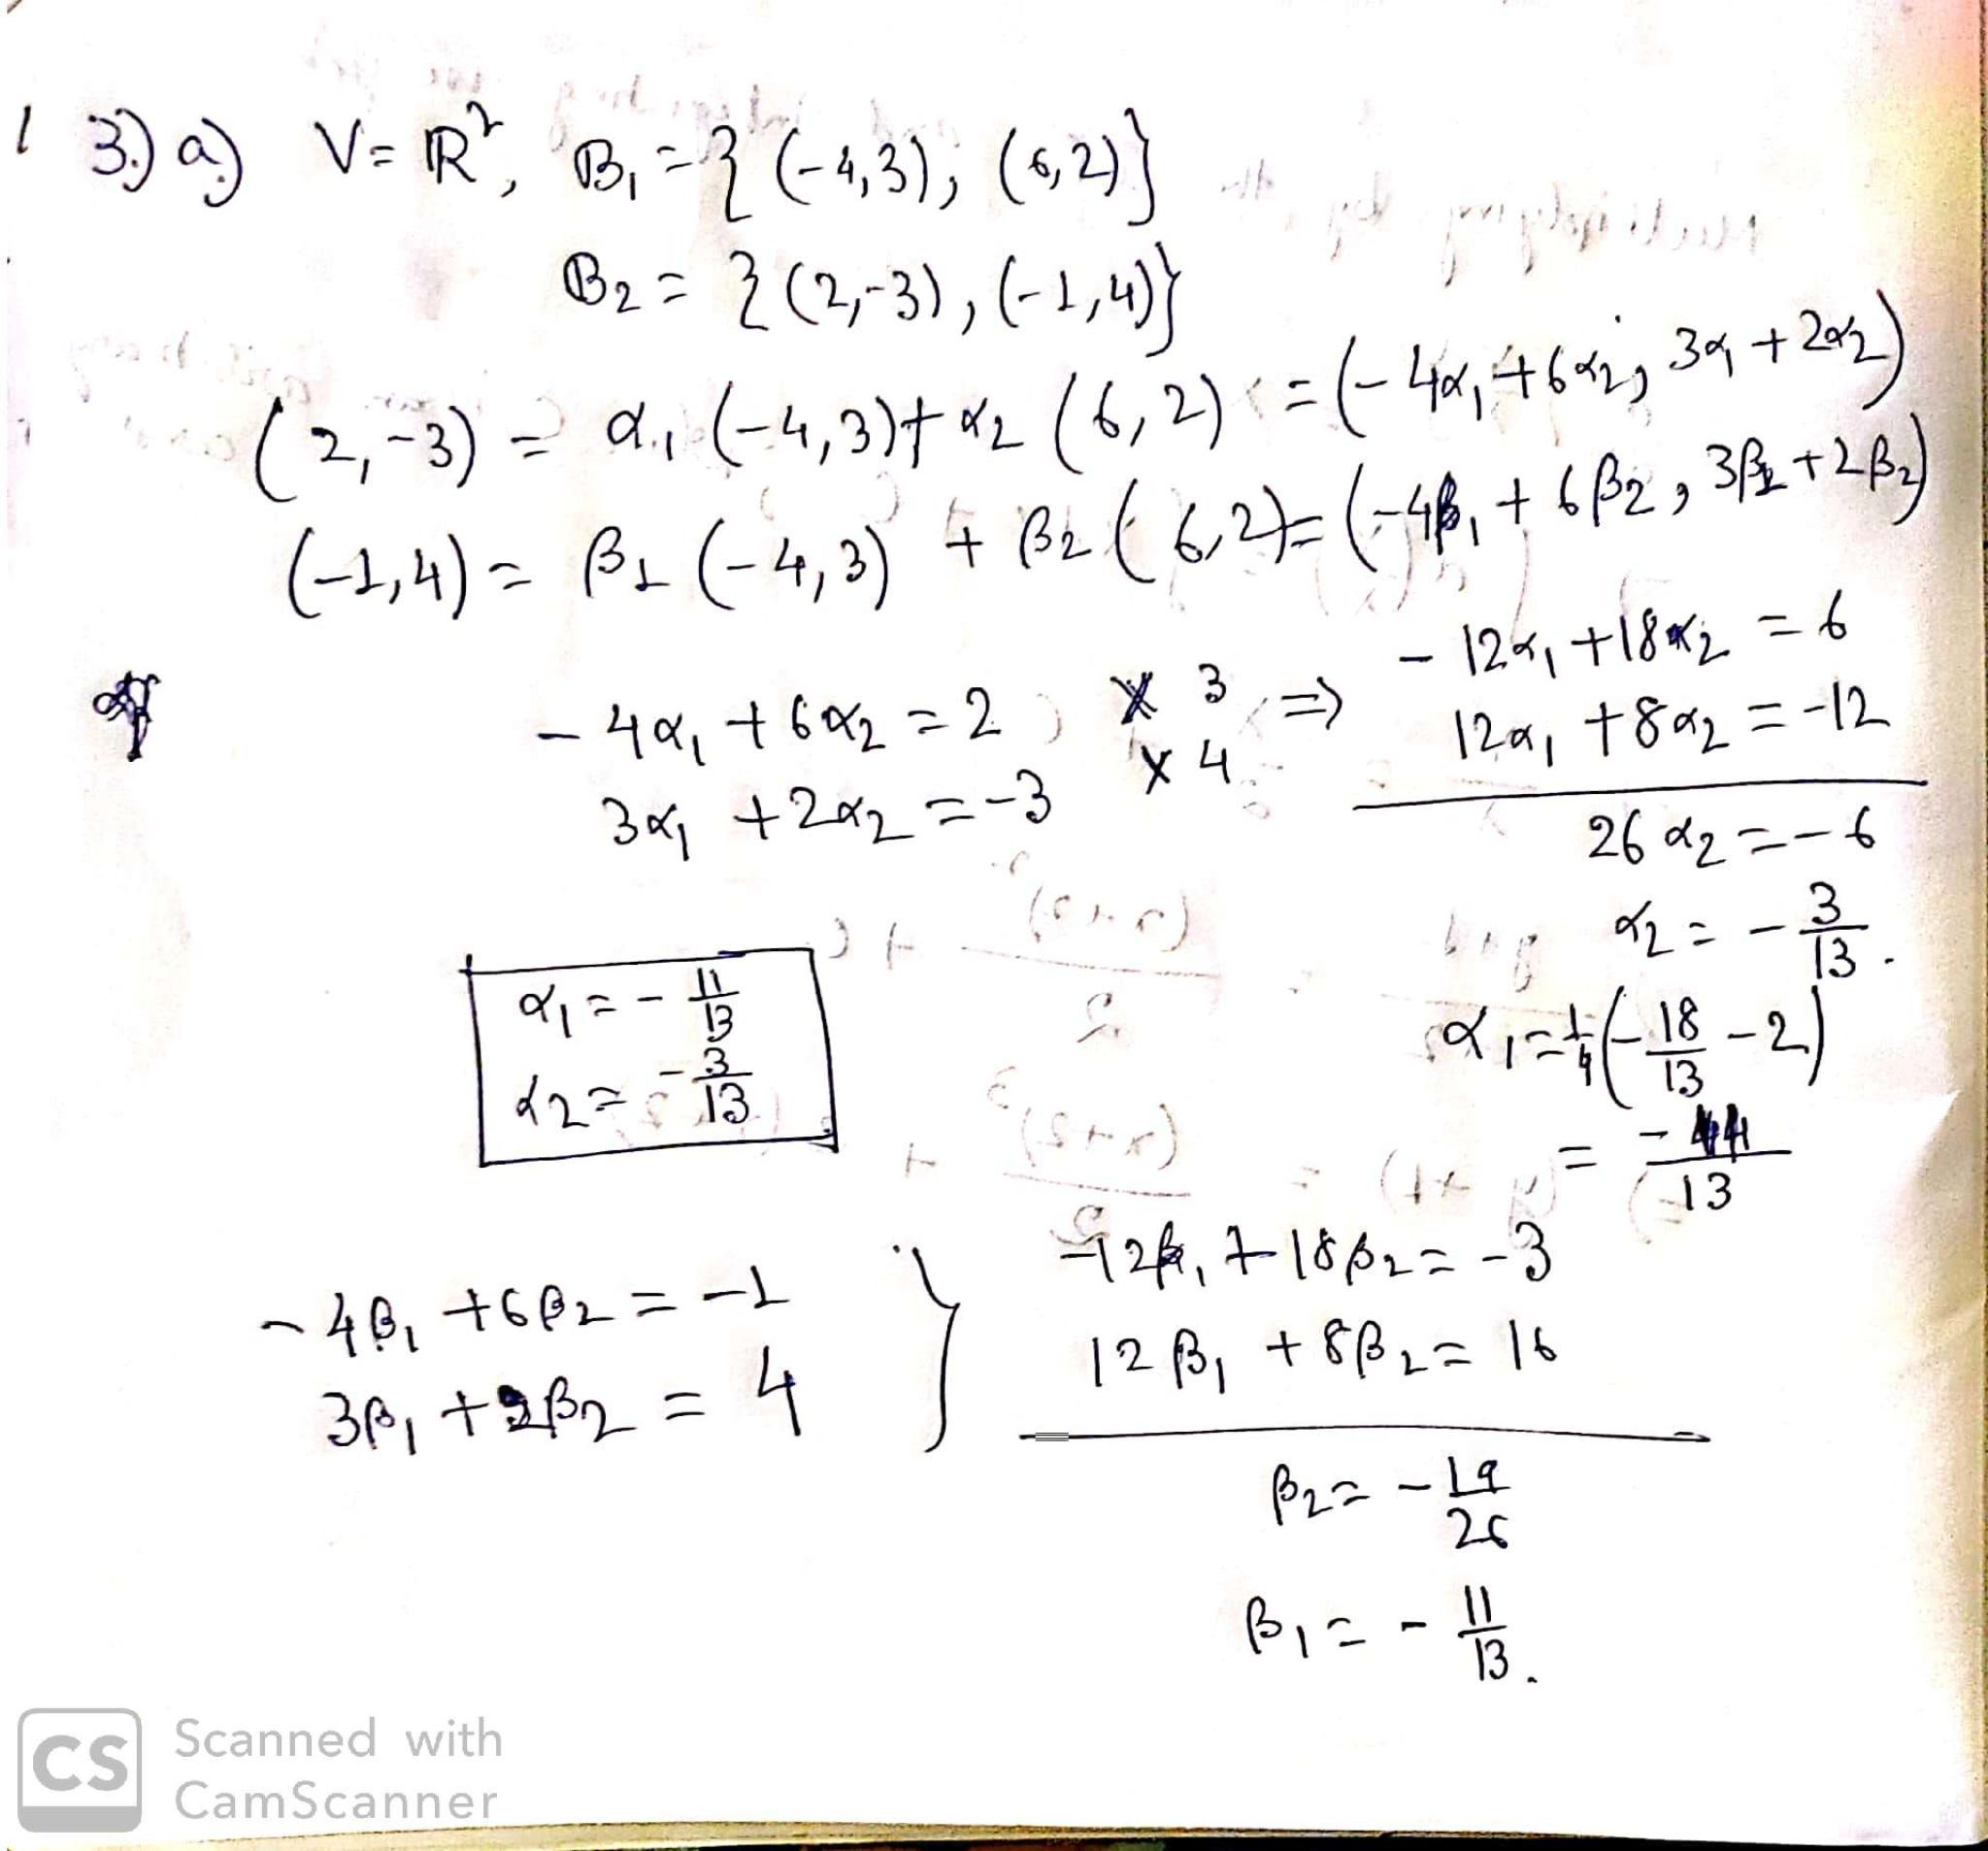 3.) a.) V = ℝ², B₁ = { (-4,3), (6,2)}
B₂ = { (2,-3), (-1,4)}
(2,-3) = α₁ (-4,3) + α₂ (6,2) = (-4α₁ + 6α₂, 3α₁ + 2α₂)
(-1,4) = β₁ (-4,3) + β₂ (6,2) = (-4β₁ + 6β₂, 3β₁ + 2β₂)
-4α₁ + 6α₂ = 2 } × 3 ⇒ -12α₁ + 18α₂ = 6
3α₁ + 2α₂ = -3 × 4 12α₁ + 8α₂ = -12
26α₂ = -6
α₂ = -3/13.
α₁ = 1/4 (-18/13 - 2)
= -11/13
α₁ = -11/13
α₂ = -3/13
-4β₁ + 6β₂ = -1 } -12β₁ + 18β₂ = -3
3β₁ + 2β₂ = 4 12β₁ + 8β₂ = 16
β₂ = -19/26
β₁ = -11/13.
CS Scanned with
CamScanner